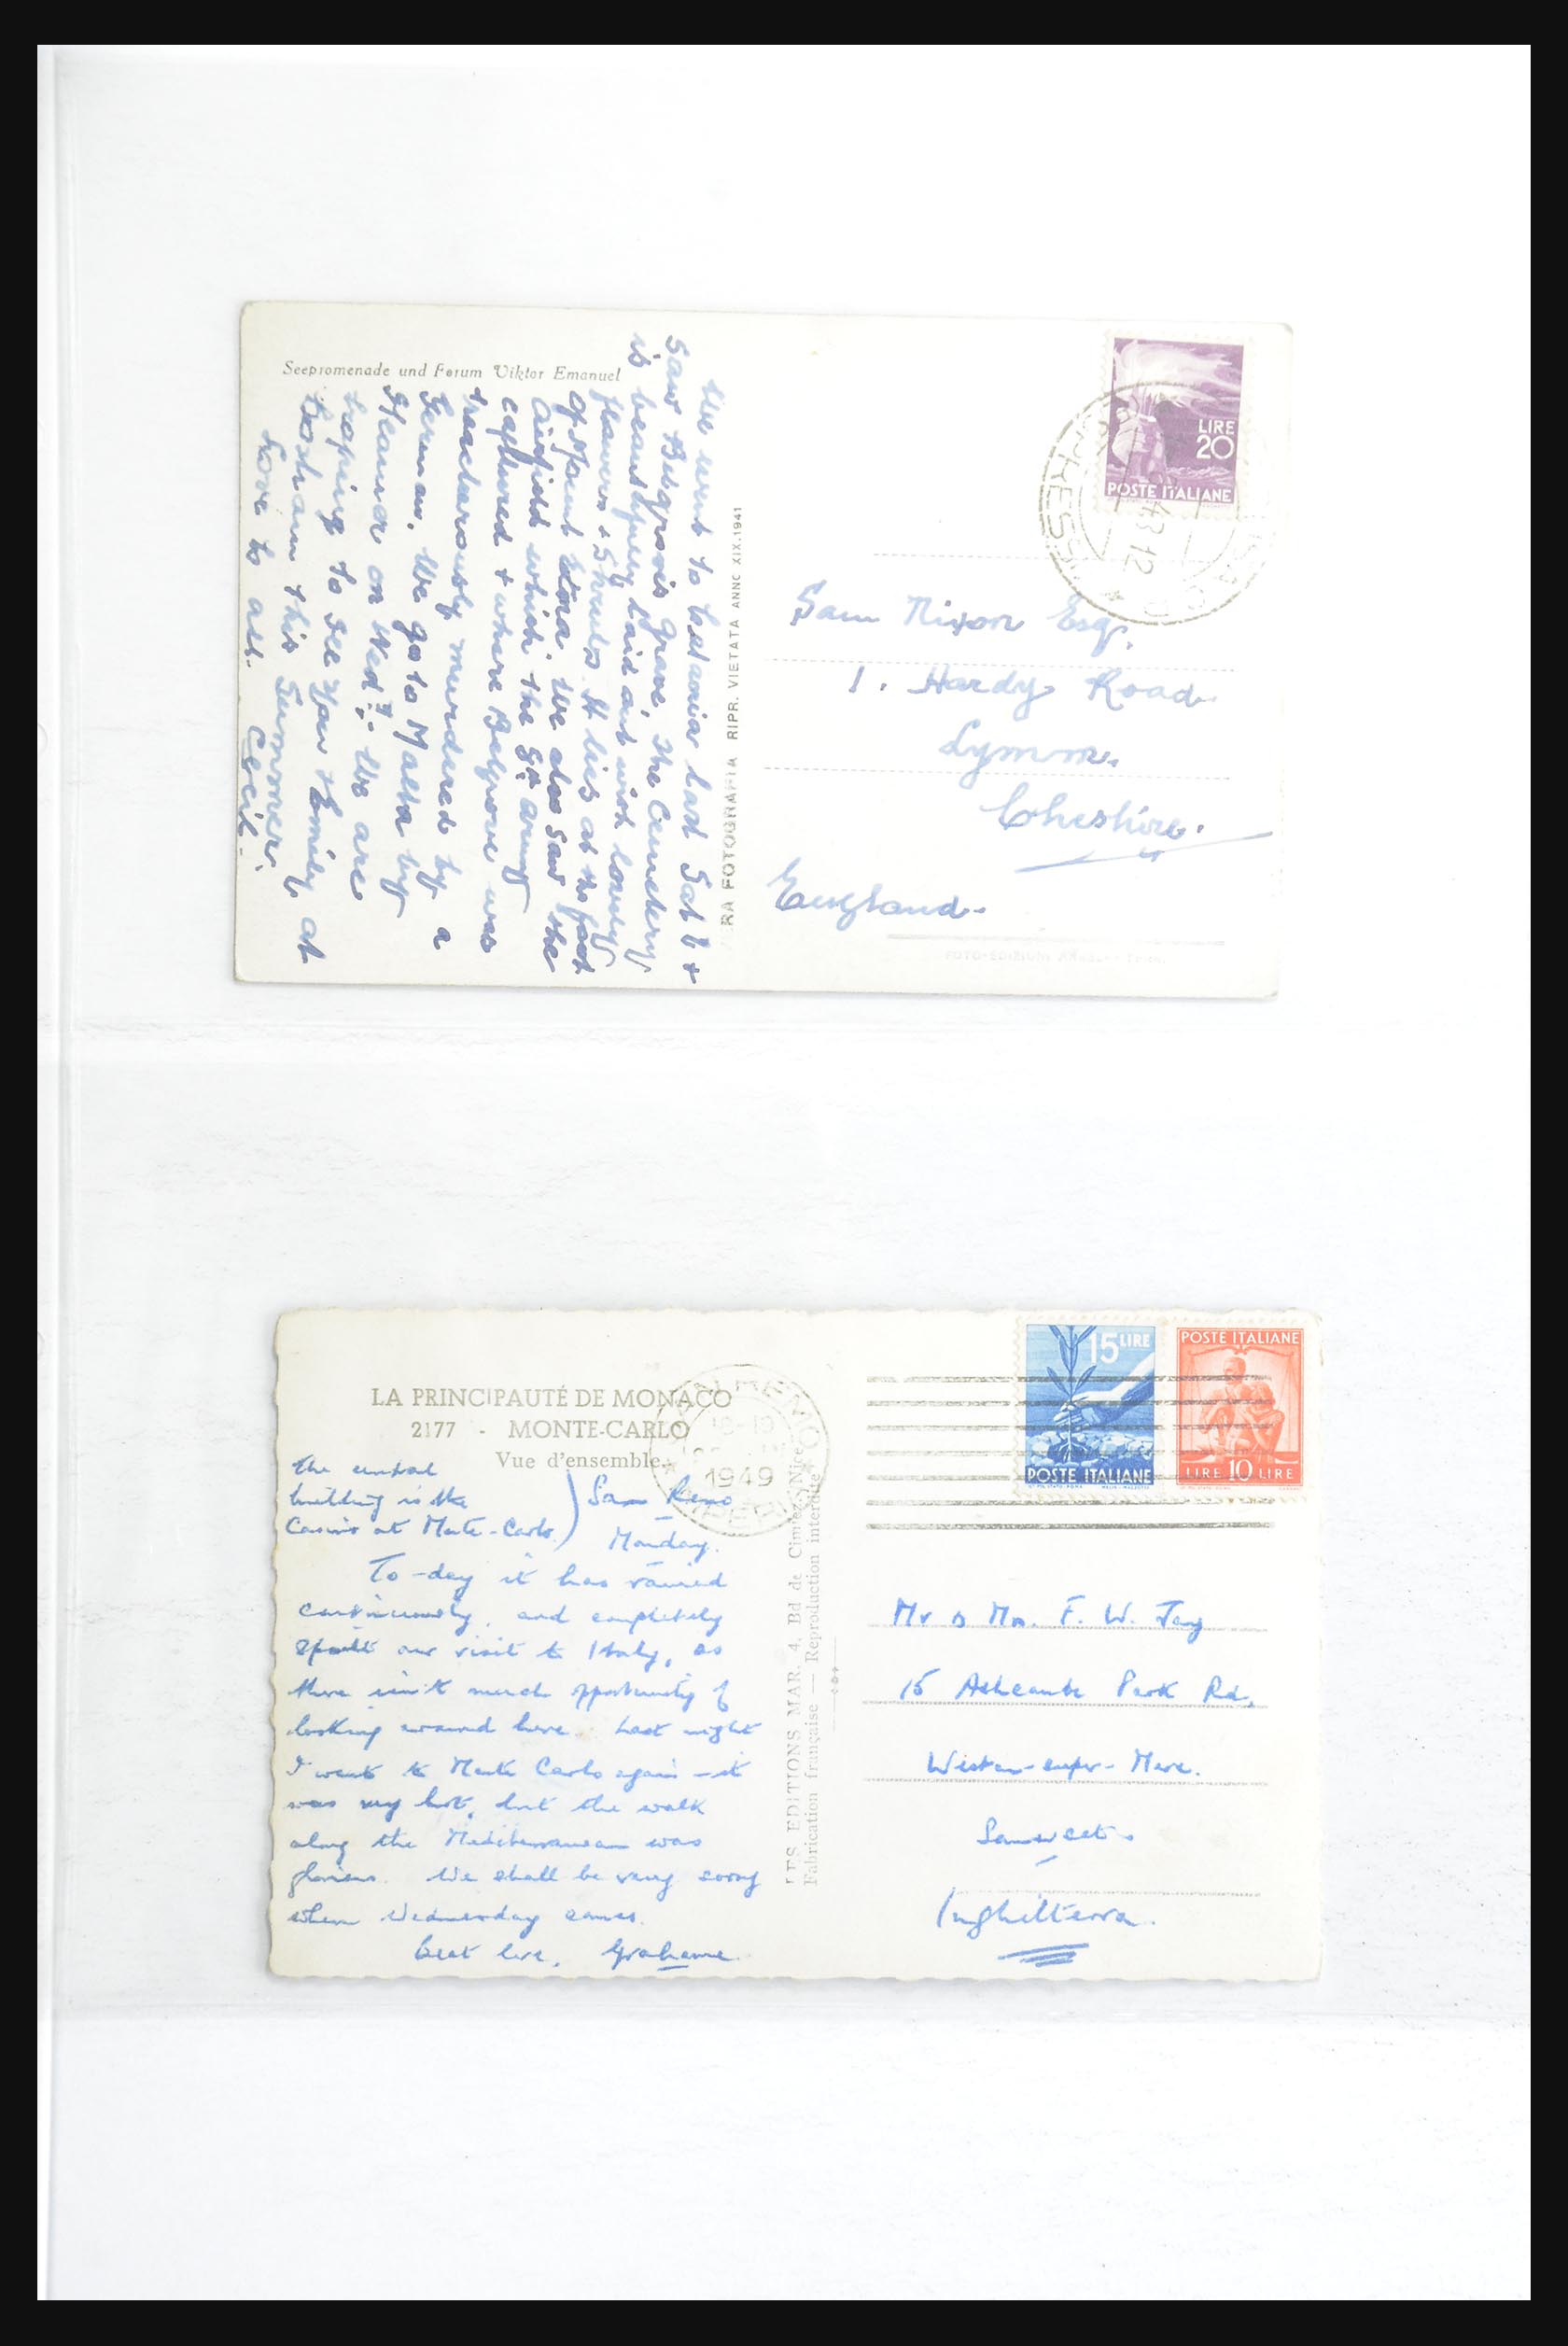 Seepromenade und Forum Viktor Emanuel
We went to Catania last Sat &
saw Belgrove's grave. The Cemetery
is beautifully laid out with lovely
flowers & shrubs. It lies at the foot
of Mount Etna. We also saw the
airfield which the 8th army
captured & where Belgrove was
treacherously murdered by a
German. We go to Malta by
Steamer on Wed. We are
hoping to see your family at
this Summer.
Love to all. Cecil.
RA FOTOGRAFIA RIPR. VIETATA ANNO XIX.1941
LIRE
20
POSTE ITALIANE
Sam Nixon Esq.
1. Hardy Road
Lymm.
Cheshire.
England.
LA PRINCIPAUTÉ DE MONACO
2177 - MONTE-CARLO
Vue d'ensemble.
1949
The central
building is the
Casino at Monte-Carlo.)
San Remo
Monday.
To-day it has rained
continuously, and completely
spoilt our visit to Italy, as
there isn't much opportunity of
looking around here. Last night
I went to Monte Carlo again – it
was very hot, but the walk
along the Mediterranean was
glorious. We shall be very sorry
when Wednesday comes.
Best love, Grahame.
LES EDITIONS MAR, 4, Bd de Cimiez, Nice
Fabrication française — Reproduction interdite
15 LIRE
POSTE ITALIANE
POSTE ITALIANE
LIRE 10 LIRE
Mr & Mrs. F. W. Jay
15 Ashcombe Park Rd,
Weston-super-Mare.
Somerset.
Inghilterra.